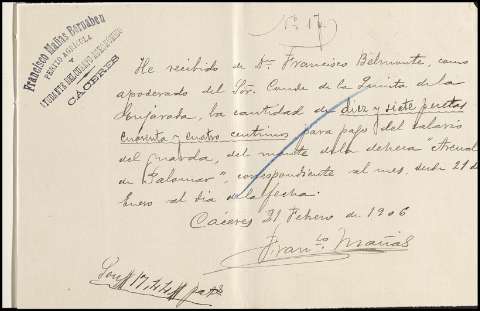 Nº 17
Francisco Mañas Bernabeu
PERITO AGRÍCOLA
Y
AYUDANTE DEL CUERPO AGRONÓMICO
CÁCERES
He recibido de Dn. Francisco Belmonte, como
apoderado del Sor. Conde de la Quinta de la
Enjarada, la cantidad de diez y siete pesetas
cuarenta y cuatro centimos para pago del salario
del guarda, del monte de la dehesa "Arenal
de Palomar", correspondiente al mes, desde 21 de
Enero al dia de la fecha.
Cáceres 21 Febrero de 1906
Franco Mañas
Son 17,44 ptas